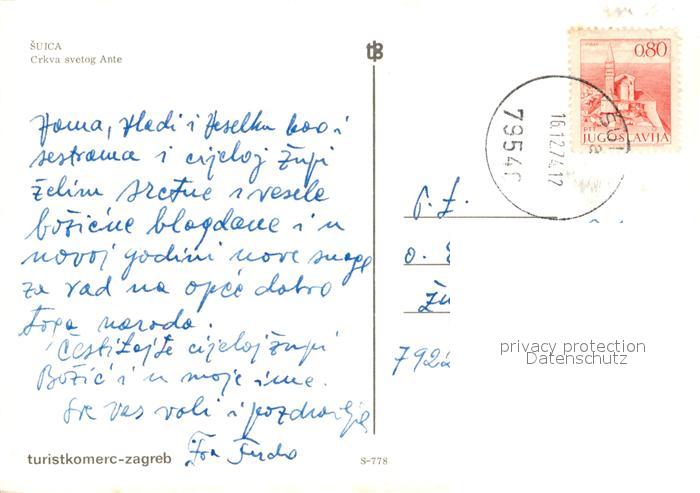 ŠUICA
Crkva svetog Ante
tB
0.80
PTT JUGOSLAVIJA
16.12.74.12
Toma, Vladi i Veselku kao i
sestrama i cijeloj župi
želim sretne i vesele
božićne blagdane i u
novoj godini nove snage
za rad na opće dobro
toga naroda.
Čestitajte cijeloj župi
Božić i u moje ime.
Sve vas voli i pozdravlja
Fra
P.Z.
o.
žu
792
privacy protection
Datenschutz
turistkomerc-zagreb
S-778